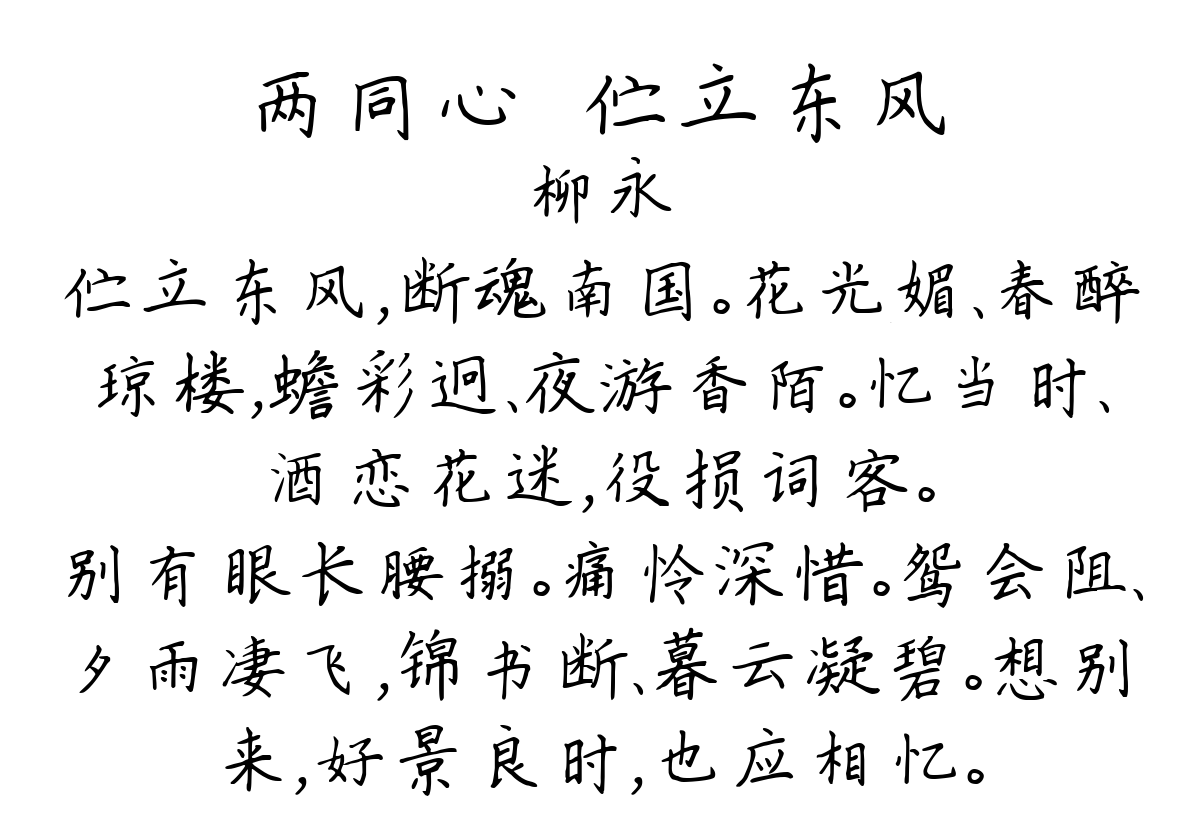 两同心 伫立东风
柳永
伫立东风,断魂南国。花光媚、春醉
琼楼,蟾彩迥、夜游香陌。忆当时、
酒恋花迷,役损词客。
别有眼长腰搦。痛怜深惜。鸳会阻、
夕雨凄飞,锦书断、暮云凝碧。想别
来,好景良时,也应相忆。